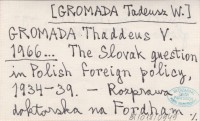 [GROMADA Tadeusz W.]
GROMADA Thaddeus V.
1966... The Slovak question
in Polish foreign policy,
1934-39. – Rozprawa
doktorska na Fordham.